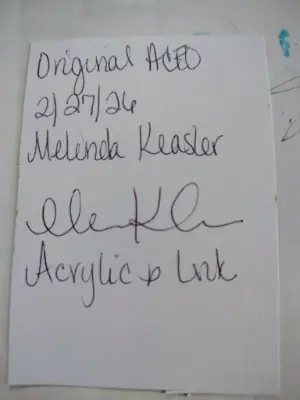 Original ACEO
2/27/26
Melenda Keasler
Acrylic & Ink